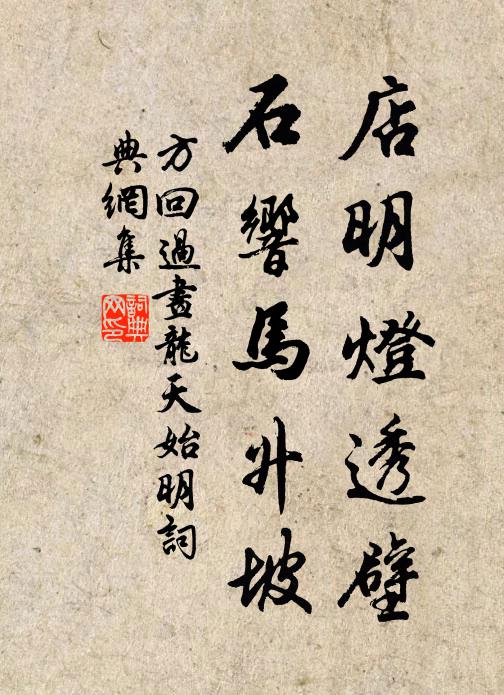 店明燈透壁
石響馬升坡
方回過晝龍天始明詞
典網集
詞典
网印